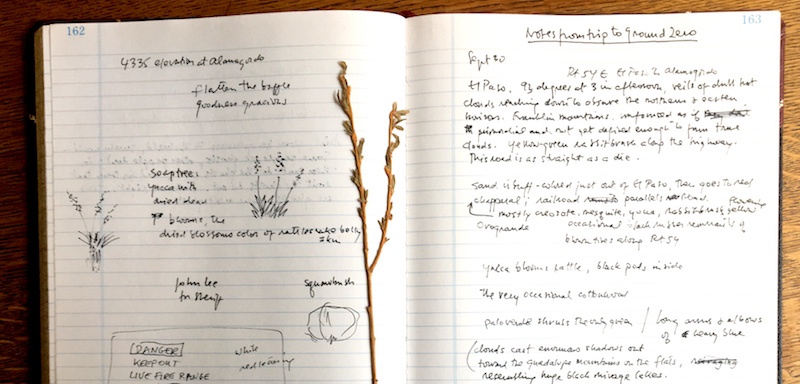 162
4335 elevation at Alamogordo
flatten the baffle
goodness gracious
soaptree
yucca with
dried dead
blooms, the
dried blossoms color of rattlesnake belly
skin
John Lee
for Sheriff
squawbush
DANGER
KEEP OUT
LIVE FIRE RANGE
white
red lettering
163
Notes from trip to Ground Zero
Sept 30
Rt 54 E El Paso to Alamogordo
El Paso, 93 degrees at 3 in afternoon, veils of dull hot
clouds reaching down to obscure the northern & eastern
horizon. Franklin mountains. unformed as if
primordial and not yet defined enough to form true
clouds. Yellow green rabbitbrush along the highway.
This road is as straight as a die.
Sand is buff-colored just out of El Paso, then goes to red
chapparal; railroad parallels road.
mostly creosote, mesquite, yucca, rabbitbrush flowering yellow
Orogrande occasional black rubber remnants of
blown tires along Rt 54
yucca blooms rattle, black pods inside
the very occasional cottonwood
paloverde shrubs the only green / long arms & elbows
of heavy blue
(clouds cast enormous shadows out
toward the Guadalupe Mountains on the flats,
resembling huge black mirage lakes.